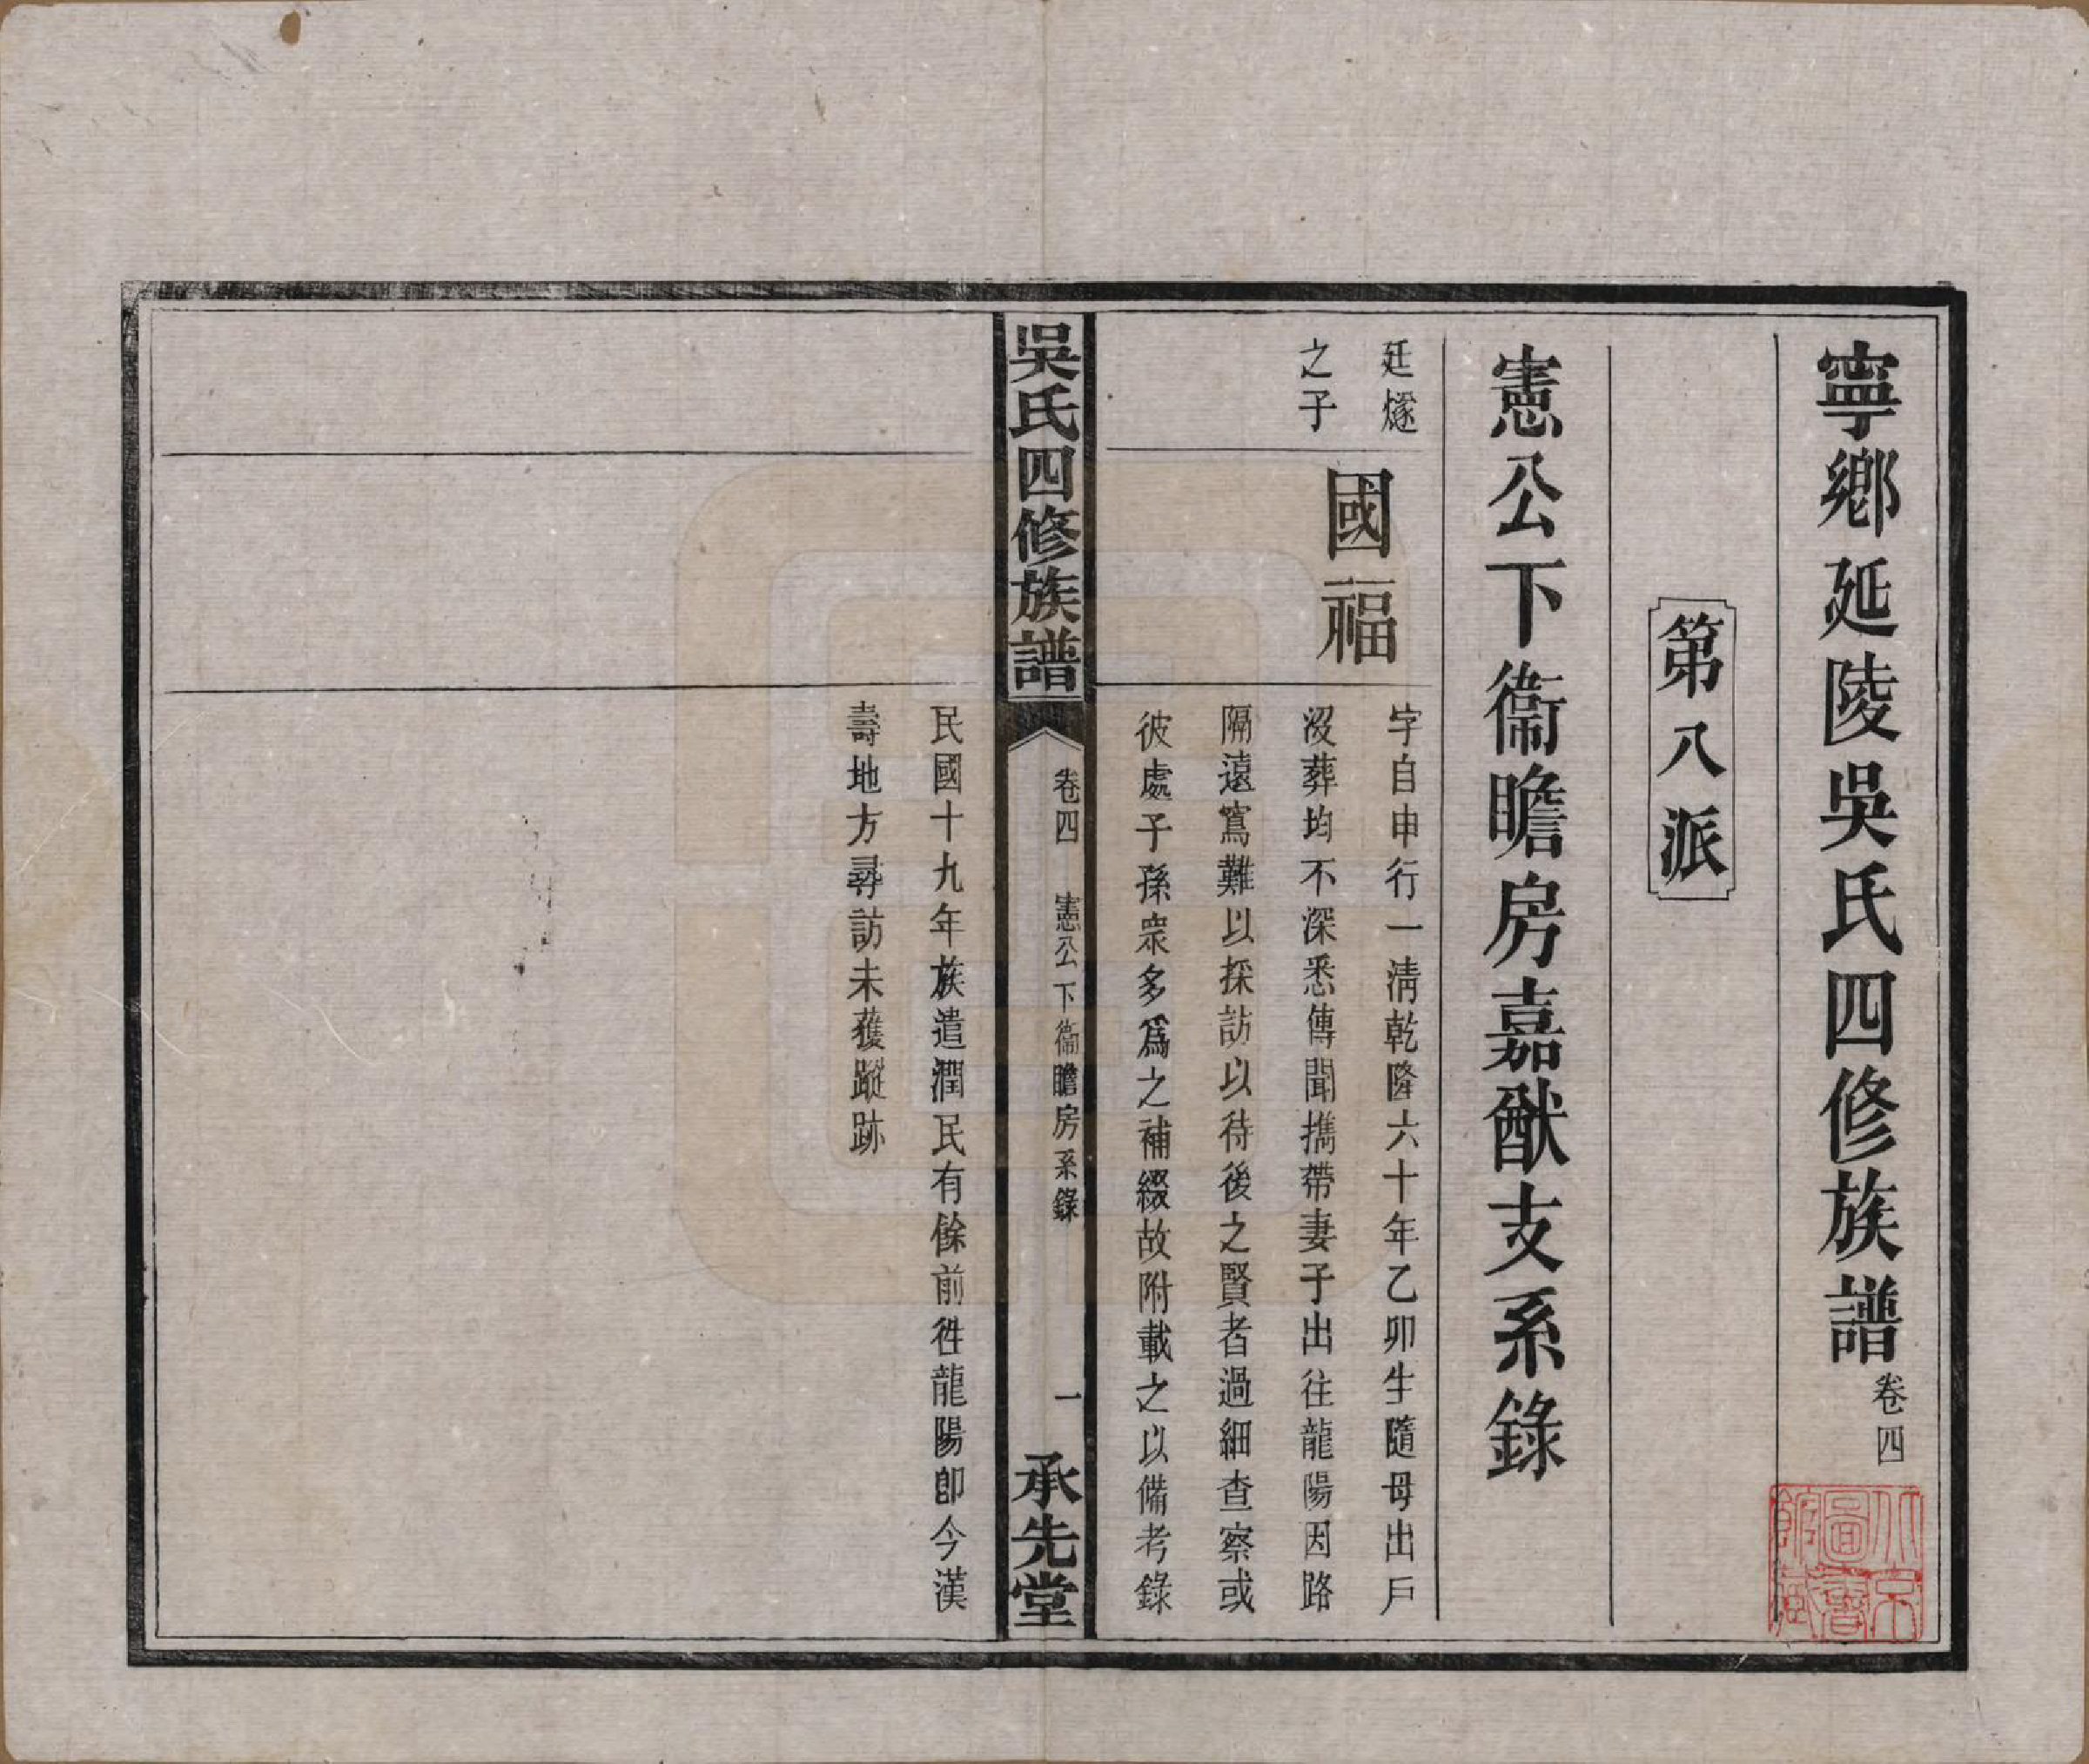 寧鄉延陵吳氏四修族譜卷四
第八派
憲公下衞瞻房嘉猷支系錄
廷燧
之子
國福
字自申行一淸乾隆六十年乙卯生隨母出戶
沒葬均不深悉傳聞攜帶妻子出往龍陽因路
隔遠寫難以採訪以待後之賢者過細查察或
彼處子孫衆多爲之補綴故附載之以備考錄
吳氏四修族譜
卷四
憲公下衞瞻房系錄
一
承先堂
民國十九年族遣潤民有餘前徃龍陽卽今漢
壽地方尋訪未獲蹤跡
北京圖書館藏